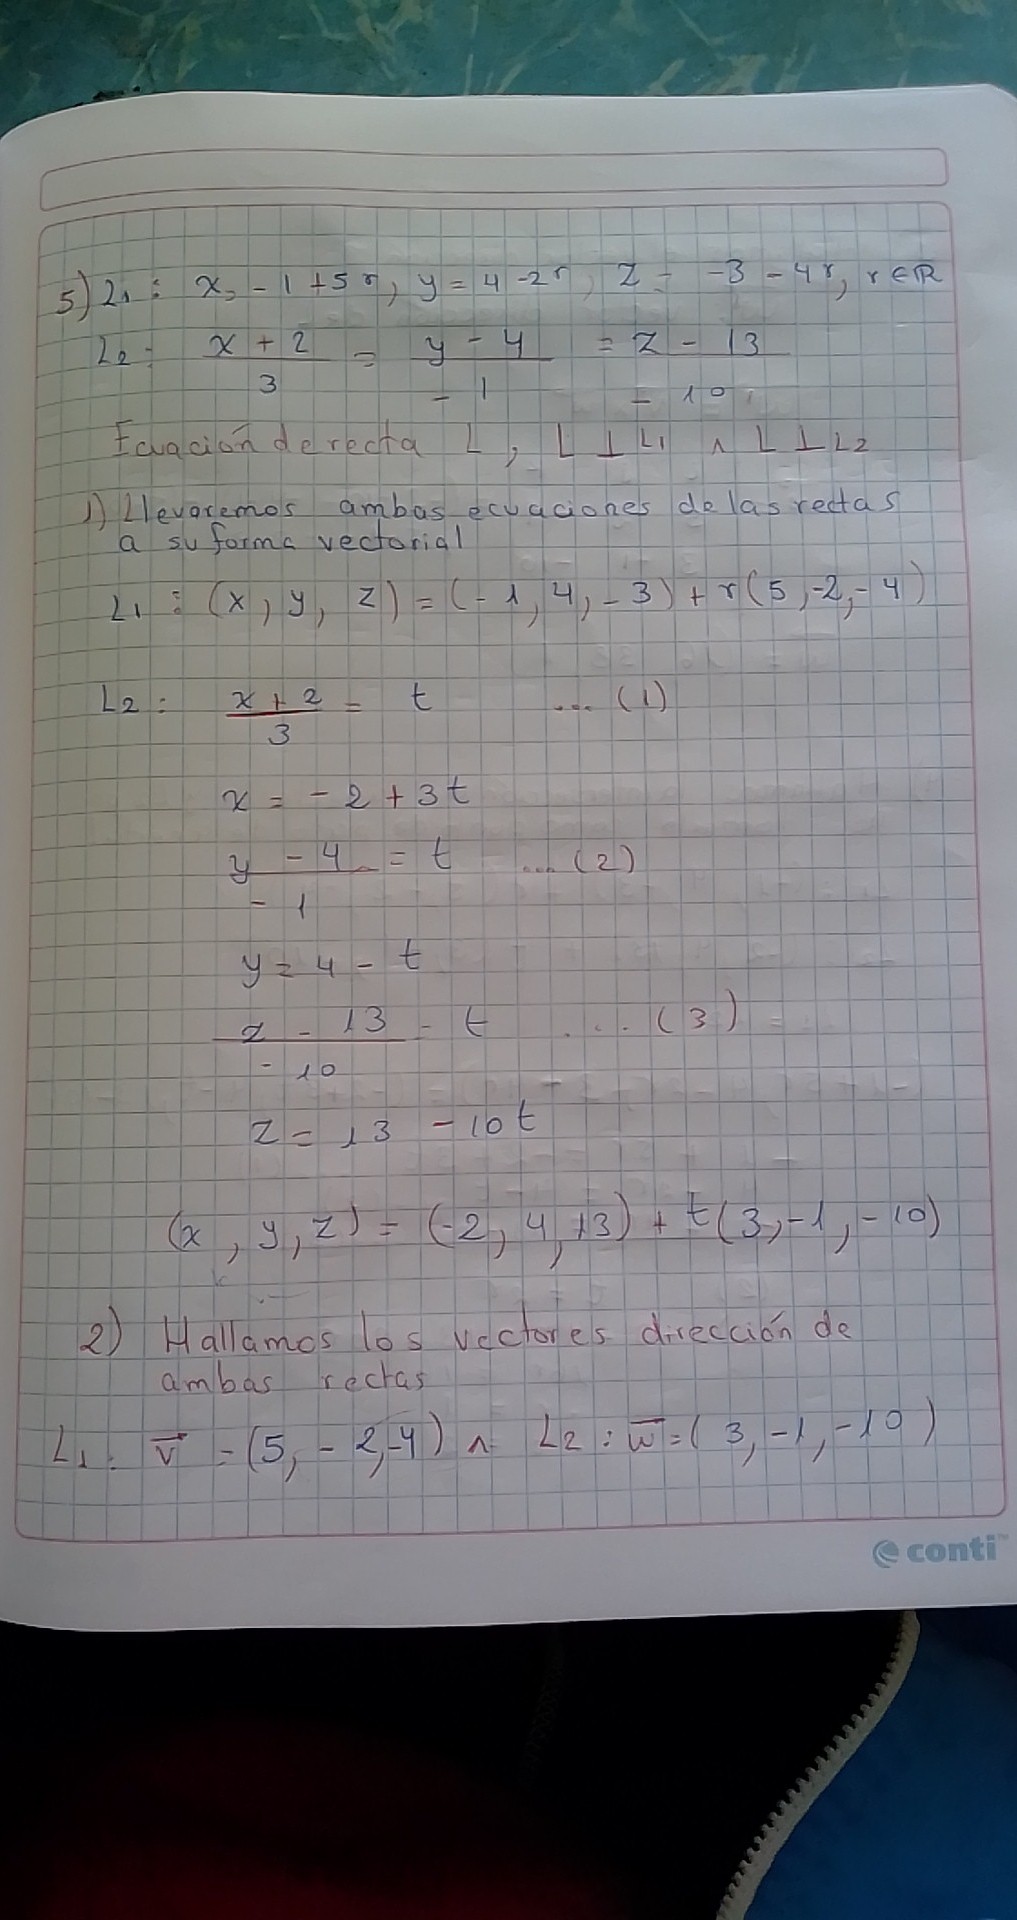 5) L₁ : x = -1 + 5r, y = 4 - 2r, z = -3 - 4r, r ∈ ℝ
L₂ : (x + 2)/3 = (y - 4)/-1 = (z - 13)/-10
Ecuación de recta L, L ⊥ L₁ ∧ L ⊥ L₂
1) Llevaremos ambas ecuaciones de las rectas
a su forma vectorial
L₁ : (x, y, z) = (-1, 4, -3) + r(5, -2, -4)
L₂ : (x + 2)/3 = t ... (1)
x = -2 + 3t
(y - 4)/-1 = t ... (2)
y = 4 - t
(z - 13)/-10 = t ... (3)
z = 13 - 10t
(x, y, z) = (-2, 4, 13) + t(3, -1, -10)
2) Hallamos los vectores dirección de
ambas rectas
L₁ : v⃗ = (5, -2, -4) ∧ L₂ : w⃗ = (3, -1, -10)
conti™